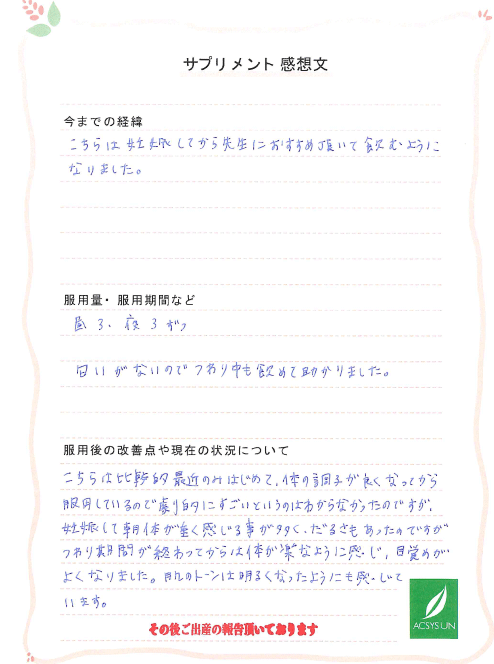 サプリメント 感想文
今までの経緯
こちらは妊娠してから先生におすすめ頂いて飲むように
なりました。
服用量・服用期間など
昼3、夜3ずつ
匂いがないのでつわり中も飲めて助かりました。
服用後の改善点や現在の状況について
こちらは比較的最近のみはじめて、体の調子が良くなってから
服用しているので劇的にすごいというのはわからなかったのですが、
妊娠して朝体が重く感じる事が多く、だるさもあったのですが
つわり期間が終わってからは体が楽なように感じ、目覚めが
よくなりました。肌のトーンは明るくなったようにも感じて
います。
その後ご出産の報告頂いております
ACSYSUN